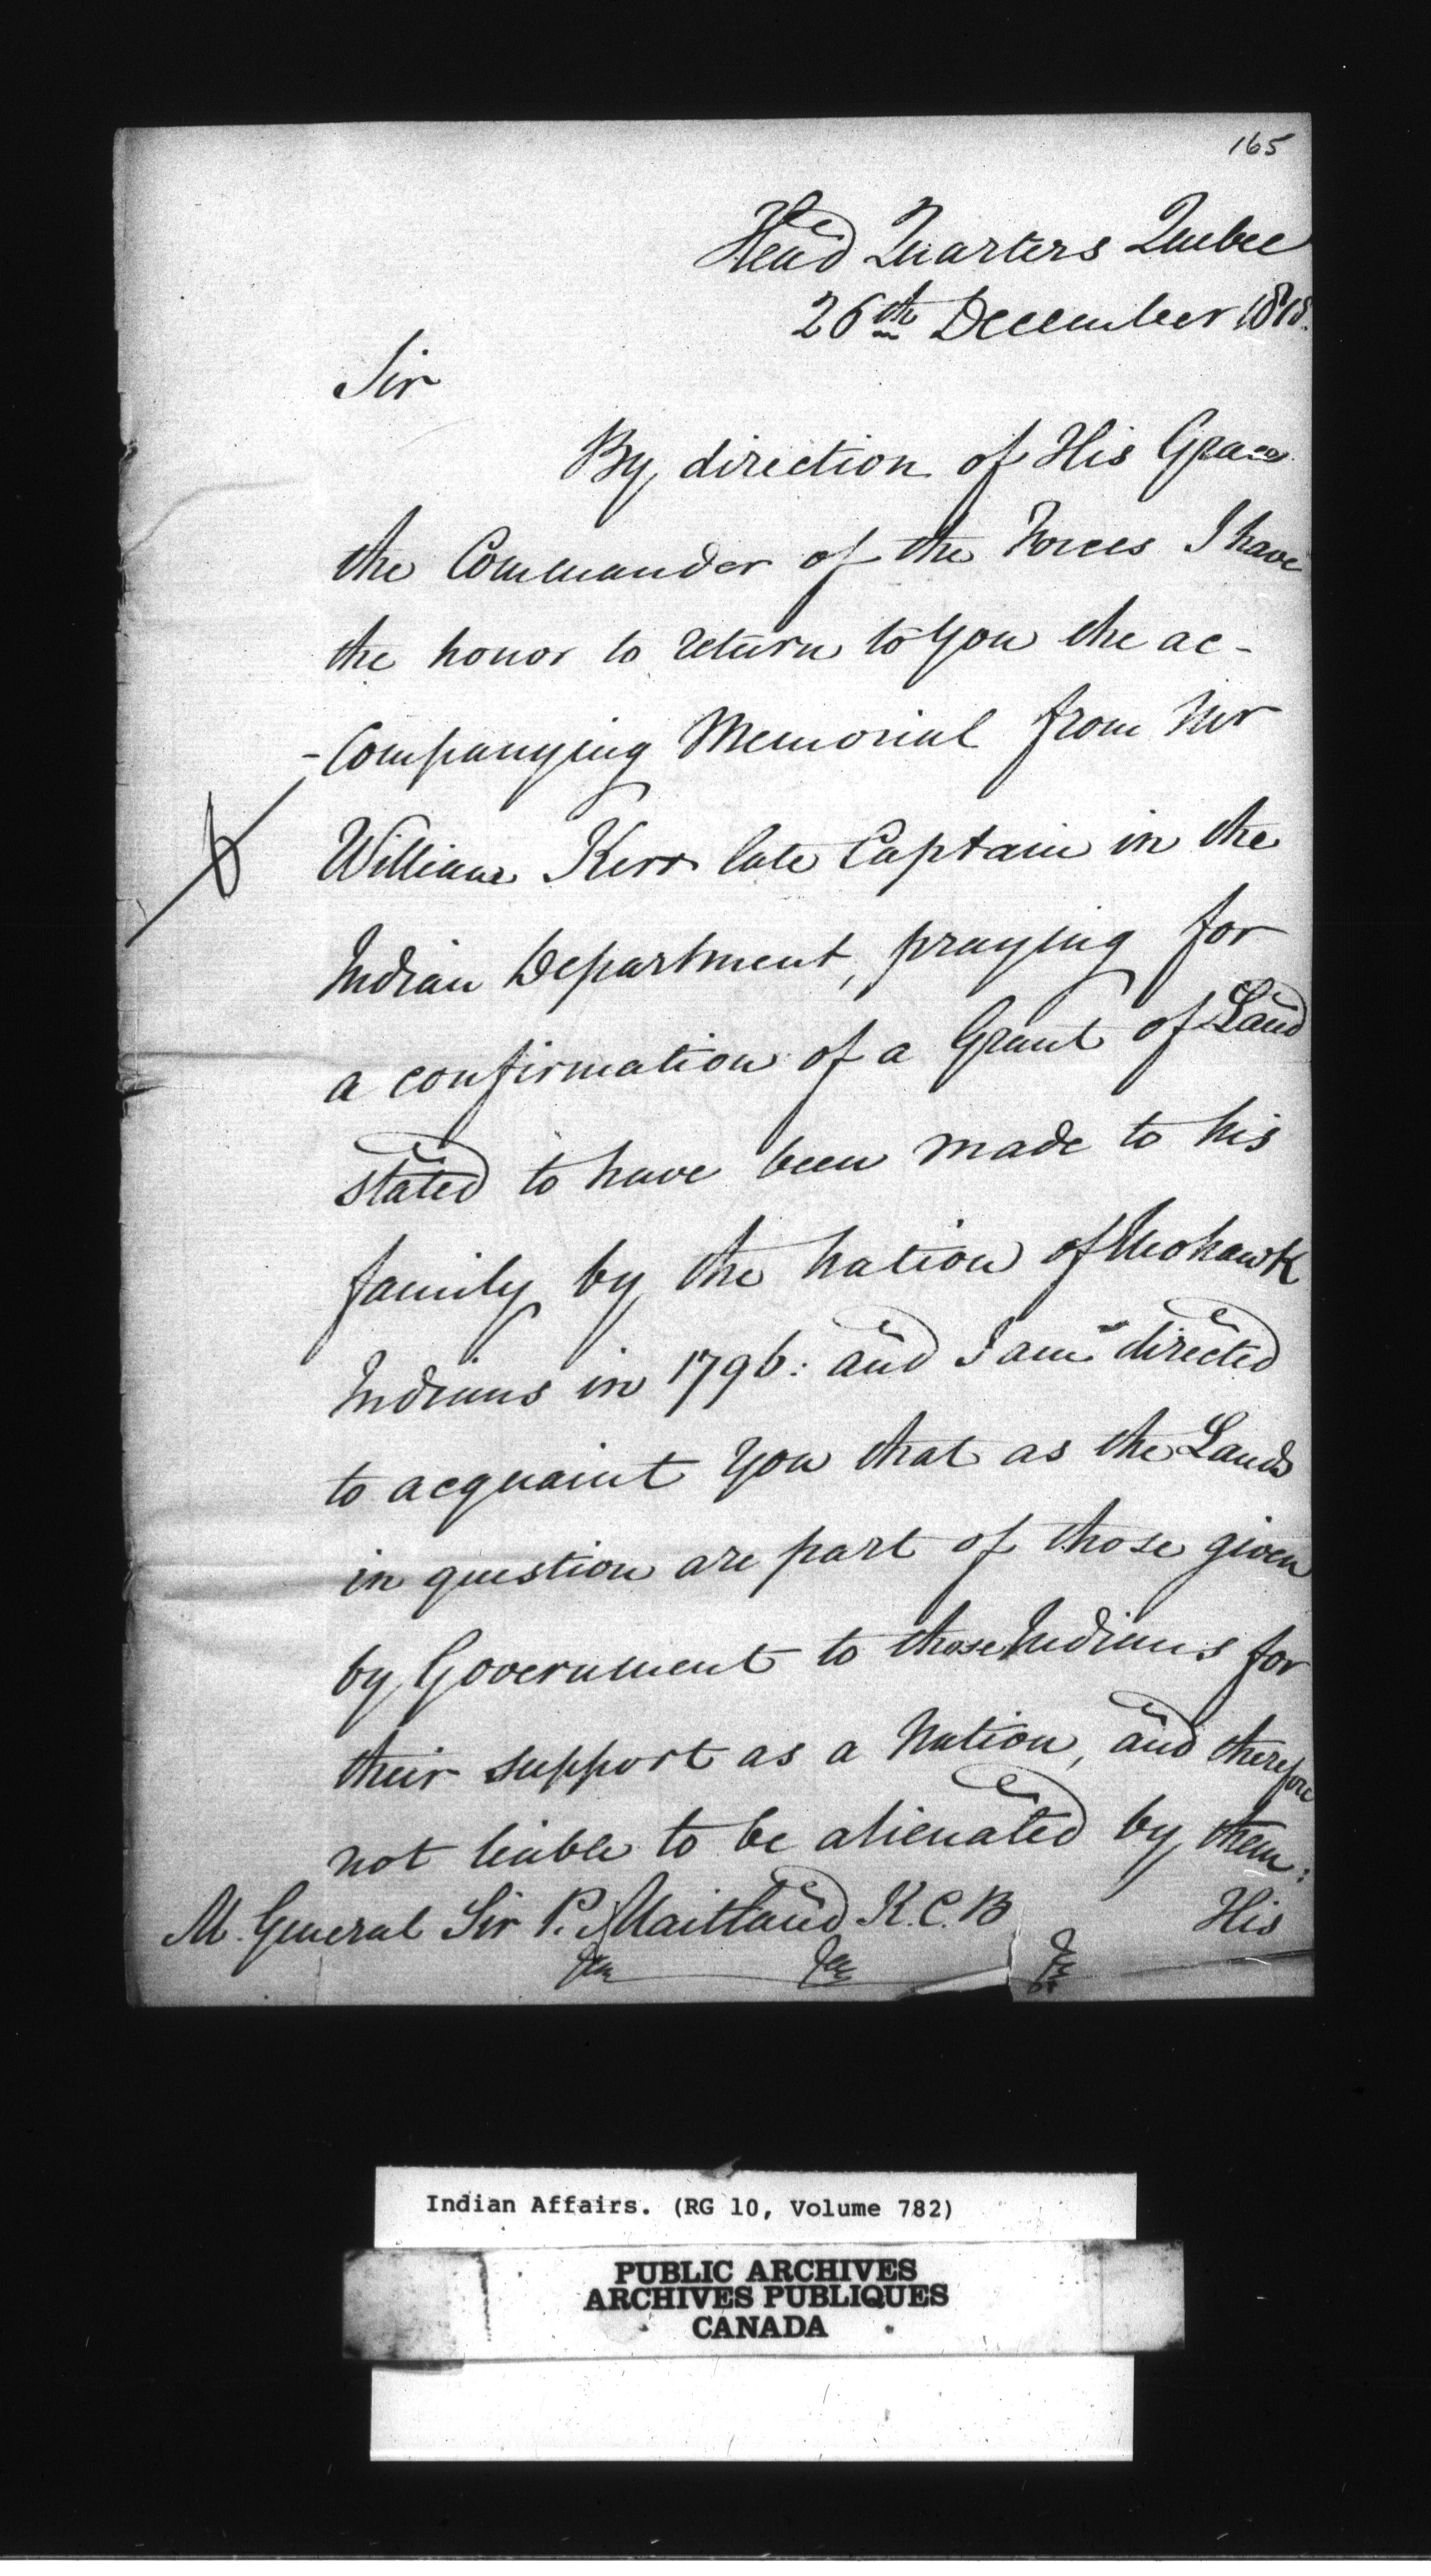 165
Head Quarters Quebec
26th December 1818.
Sir
By direction of His Grace
the Commander of the Forces I have
the honor to return to You the ac-
-companying Memorial from Mr
William Kerr late Captain in the
Indian Department, praying for
a confirmation of a Grant of Land
stated to have been made to his
family by the Nation of Mohawk
Indians in 1796: and I am directed
to acquaint You that as the Lands
in question are part of those given
by Government to those Indians for
their support as a Nation, and therefore
not liable to be alienated by them:
M. General Sir P. Maitland K.C.B
His
Indian Affairs. (RG 10, Volume 782)
PUBLIC ARCHIVES
ARCHIVES PUBLIQUES
CANADA